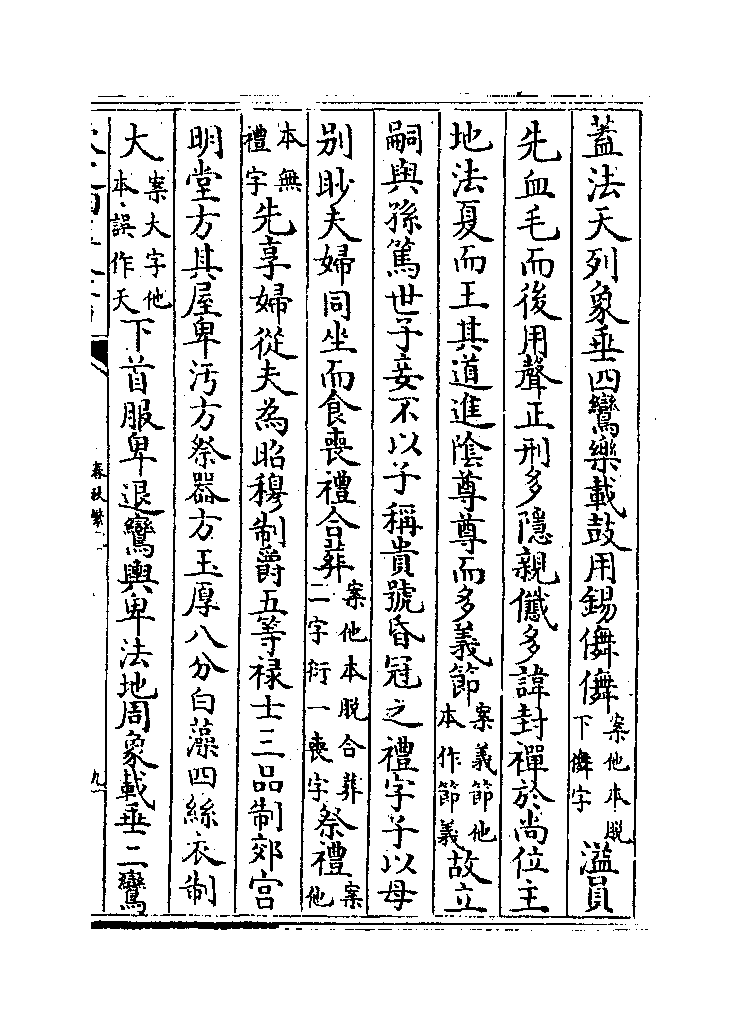 蓋法天列象垂四鸞樂載鼓用錫儛儛案他本脫下儛字溢員
先血毛而後用聲正刑多隱親㦰多諱封禪於尚位主
地法夏而王其道進陰尊尊而多義節案義節他本作節義故立
嗣與孫篤世子妾不以子稱貴號昏冠之禮字子以母
別眇夫婦同坐而食喪禮合葬案他本脫合葬二字衍一喪字祭禮案他
本無禮字先享婦從夫為昭穆制爵五等祿士三品制郊宮
明堂方其屋卑汚方祭器方玉厚八分白藻四絲衣制
大案大字他本誤作天下首服卑退鸞輿卑法地周象載垂二鸞
春秋繁
九